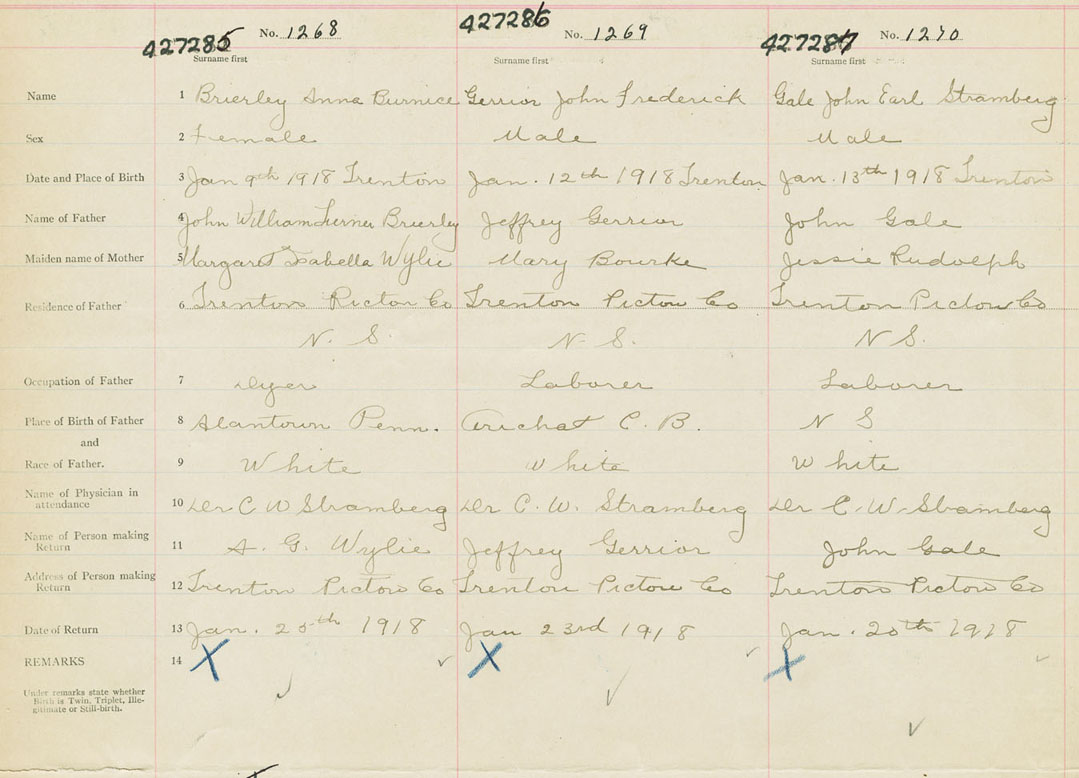 427285 No. 1268 427286 No. 1269 427287 No. 1270
Surname first Surname first Surname first
Name 1 Brierley Anna Burnice Gerrior John Frederick Gale John Earl Stramberg
Sex 2 Female Male Male
Date and Place of Birth 3 Jan 9th 1918 Trenton Jan. 12th 1918 Trenton Jan. 13th 1918 Trenton
Name of Father 4 John William Turner Brierley Jeffrey Gerrior John Gale
Maiden name of Mother 5 Margaret Isabella Wylie Mary Bourke Jessie Rudolph
Residence of Father 6 Trenton Pictou Co Trenton Pictou Co Trenton Pictou Co
N. S. N. S. N S.
Occupation of Father 7 Dyer Laborer Laborer
Place of Birth of Father 8 Alantown Penn. Arichat C. B. N S
and
Race of Father. 9 White White White
Name of Physician in
attendance 10 Dr C W Stramberg Dr C. W. Stramberg Dr C. W. Stramberg
Name of Person making
Return 11 A. G. Wylie Jeffrey Gerrior John Gale
Address of Person making
Return 12 Trenton Pictou Co Trenton Pictou Co Trenton Pictou Co
Date of Return 13 Jan. 25th 1918 Jan 23rd 1918 Jan. 20th 1918
REMARKS 14 X X X
Under remarks state whether
Birth is Twin, Triplet, Ille-
gitimate or Still-birth.